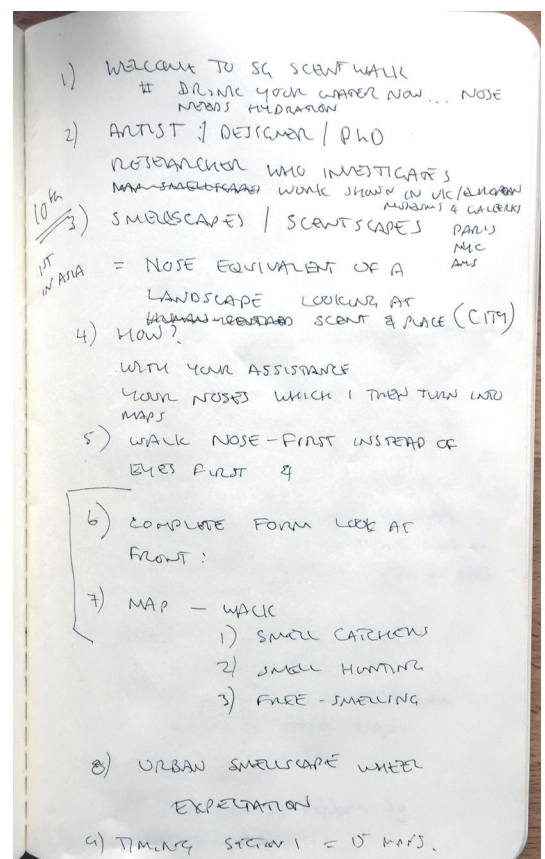 1) WELCOME TO SG SCENTWALK
# DRINK YOUR WATER NOW... NOSE
NEEDS HYDRATION
2) ARTIST / DESIGNER / PHD
RESEARCHER WHO INVESTIGATES
MAP SMELLSCAPES WORK SHOWN IN UK/EUROPEAN
MUSEUMS & GALLERIES
10th
3) SMELLSCAPES / SCENTSCAPES
PARIS
NYC
AMS
1ST
IN ASIA
= NOSE EQUIVALENT OF A
LANDSCAPE LOOKING AT
HUMAN-CENTRED SCENT & PLACE (CITY)
4) HOW?
WITH YOUR ASSISTANCE
YOUR NOSES WHICH I THEN TURN INTO
MAPS
5) WALK NOSE-FIRST INSTEAD OF
EYES FIRST &
6) COMPLETE FORM LOOK AT
FRONT:
7) MAP - WALK
1) SMELL CATCHERS
2) SMELL HUNTING
3) FREE-SMELLING
8) URBAN SMELLSCAPE WHEEL
EXPECTATION
9) TIMING SECTION 1 = 15 MINS.